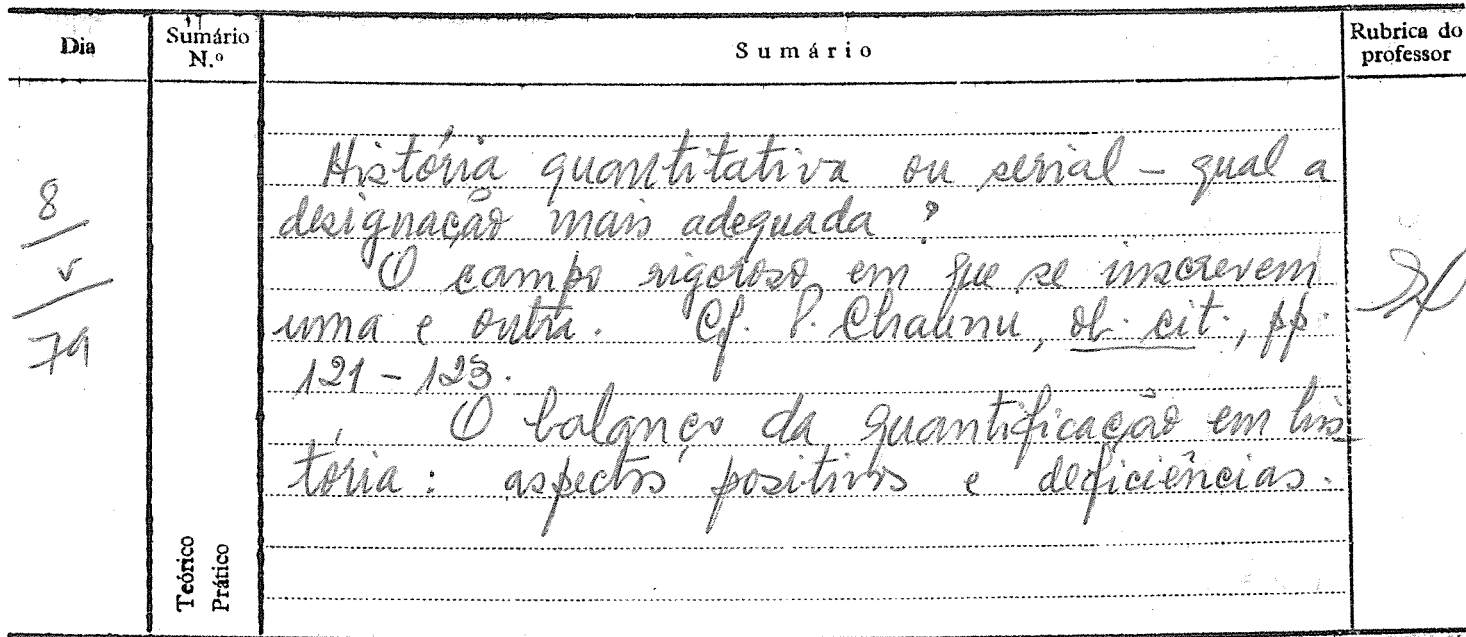 Dia
Sumário
N.º
Sumário
Rubrica do
professor
8
V
79
História quantitativa ou serial – qual a
designação mais adequada?
O campo rigoroso em que se inscrevem
uma e outra. Cf. P. Chaunu, ob. cit., pp.
121 – 123.
O balanço da quantificação em his
tória: aspectos positivos e deficiências.
Teórico
Prático